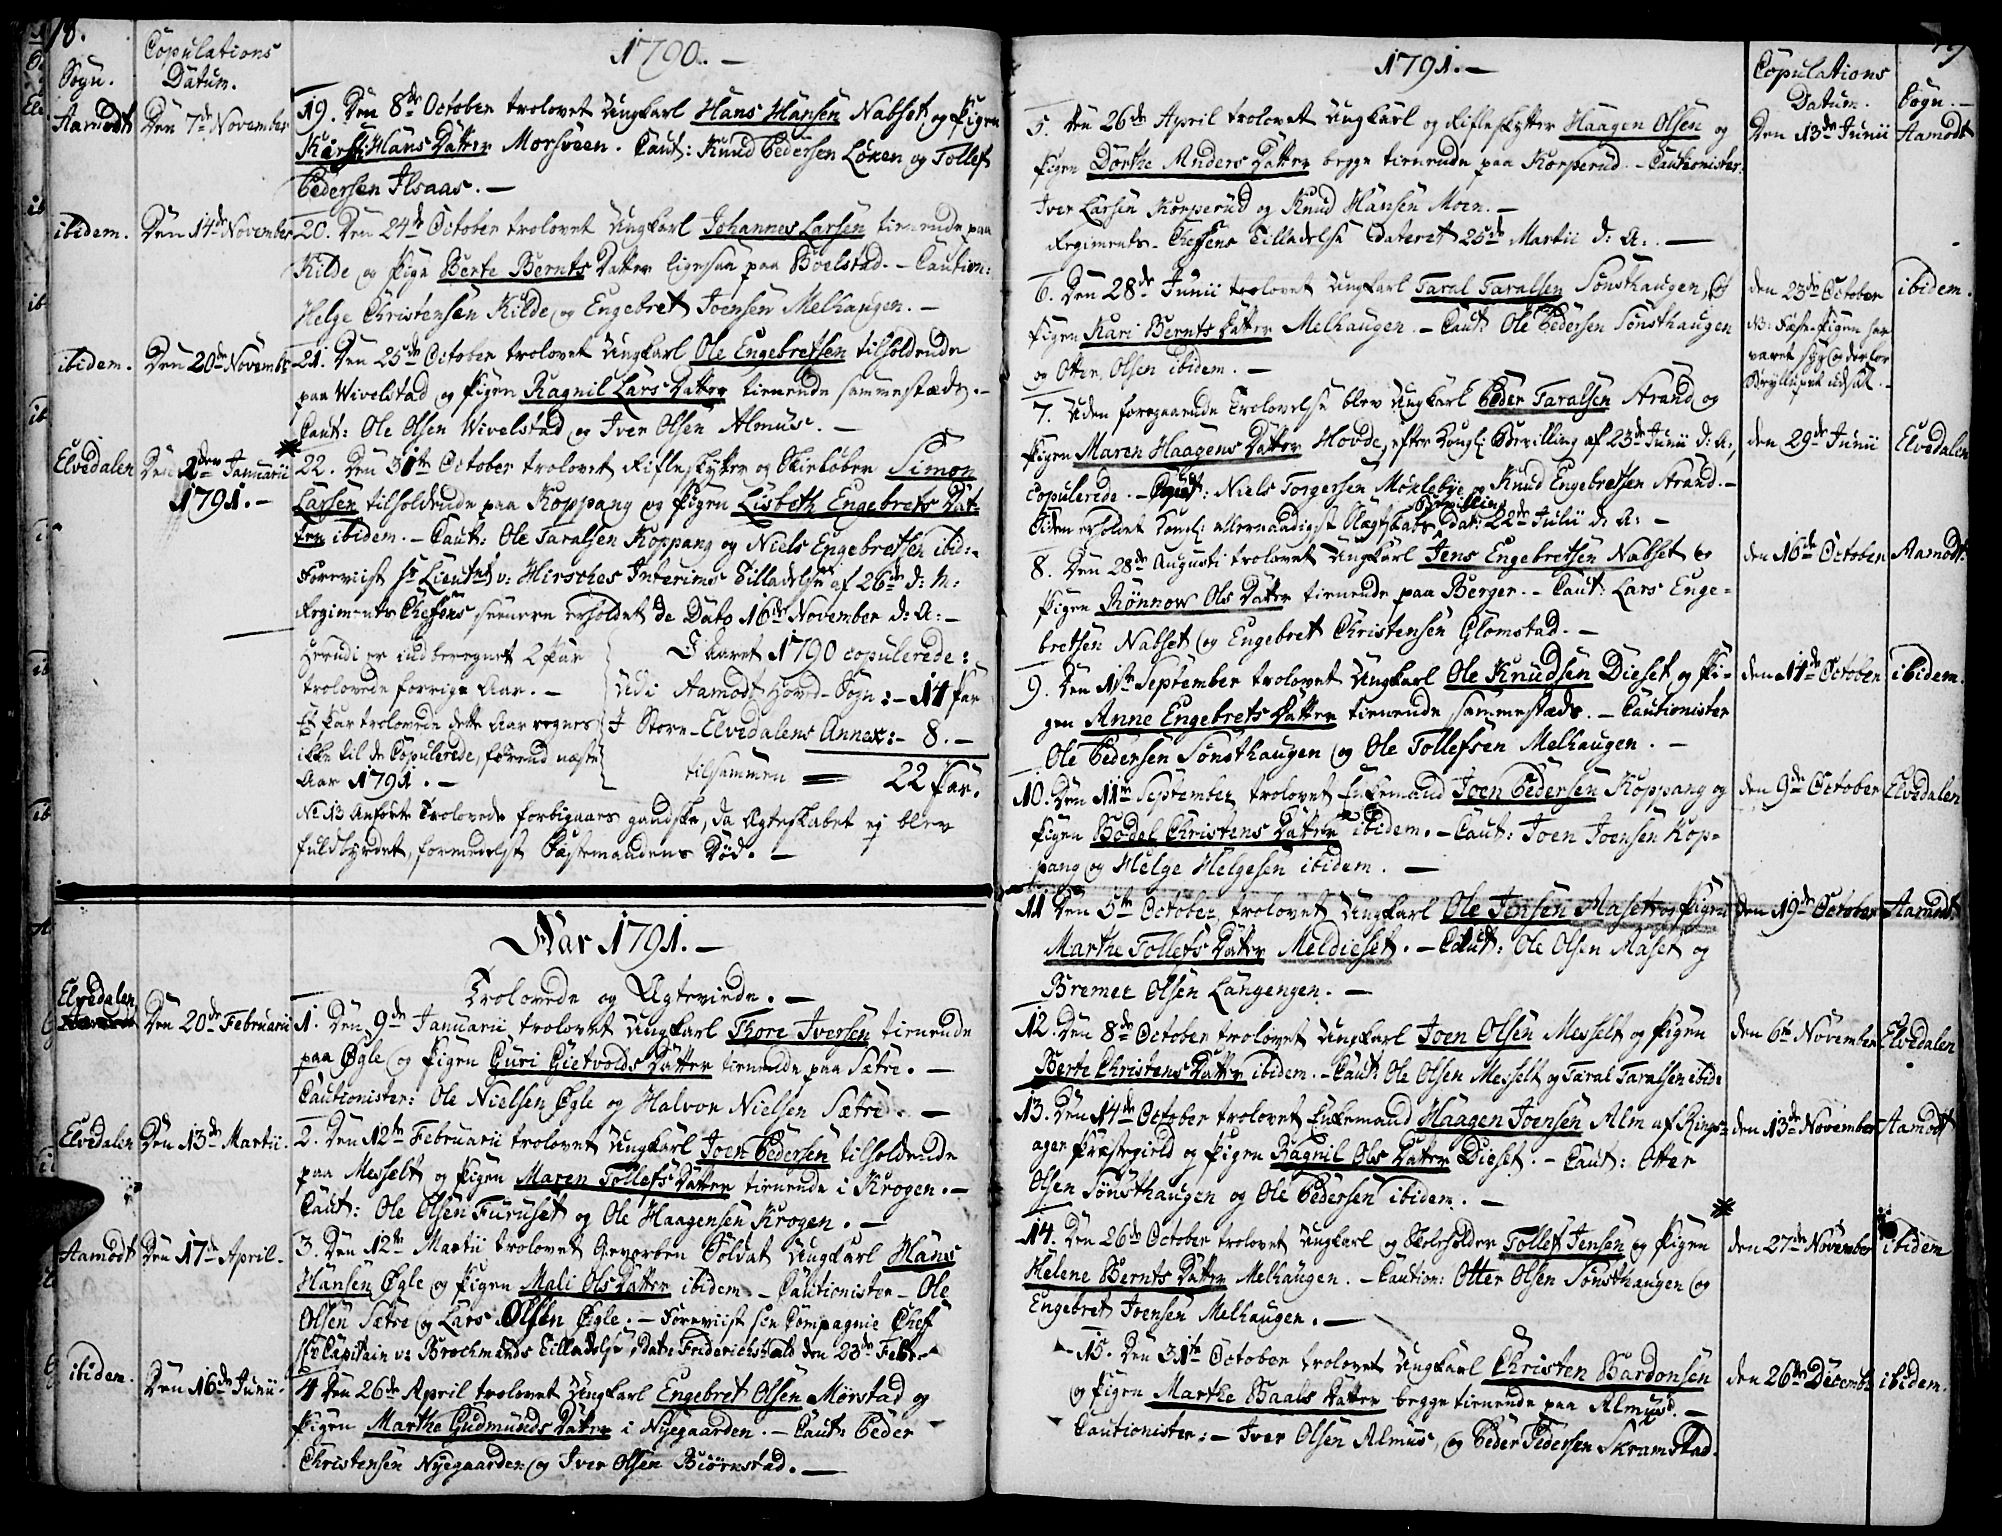 18.
1790. —
Sogn.
Copulations
Datum.
Aamodt
Den 7de November
19. Den 8de October trolovet Ungkarl Hans Hansen Nabset og Pigen
Kirsti Hans Datter Morsveen. Caut: Knud Pedersen Löken og Tollef
Pedersen Ilsaas. —
ibidem.
Den 14de November
20. Den 24de October trolovet Ungkarl Johannes Larsen tienende paa
Kilde og Pige Berte Bernts Datter ligesaa paa Boelstad. — Caution:
Helge Christensen Kilde og Engebret Joensen Melhaugen. —
ibidem.
Den 20de Novembr
21. Den 25de October trolovet Ungkarl Ole Engebretsen tilholdende
paa Wivelstad og Pigen Ragnil Lars Datter tienende sammestæds. —
Caut: Ole Olsen Wivelstad og Iver Olsen Almüs. —
Elvedalen
Den 2den Januarii
1791. —
22. Den 31te October trolovet Rifleskytter og Skielöber Simon
Larsen tilholdende paa Koppang og Pigen Lisbeth Engebrets Dat-
ter ibidem. — Caut: Ole Taralsen Koppang og Niels Engebretsen ibid:
Foreviist Hr Lieutnt v: Hirsches Interims Tilladelse af 26de d: M:
Regiments Chefens seenere erholdet de Dato 16de November d: A: —
Herudi er indberegnet 2 Par
trolovede forrige Aar. —
Et Par trolovede dette Aar regnes
ikke til de Copulerede, förend næste
Aar 1791. —
I Aaret 1790 copulerede:
Udi Aamodt Hoved-Sogn: — 14 Par
I Store-Elvedalens Annex: — 8. —
tilsammen = 22 Par.
No 13 Anförte Trolovede forbigaaes gandske, da Ægteskabet ej blev
fuldbyrdet, formedelst Fæstemandens Död. —
Aar 1791. —
Trolovede og Ægteviede. —
Elvedalen
Den 20de Februarii
1. Den 9de Januarii trolovet Ungkarl Thore Iversen tienende
paa Øgle og Pigen Guri Gietvolds Datter tienende paa Sætre. —
Cautionister: Ole Nielsen Øgle og Halvor Nielsen Sætre. —
Elvedalen
Den 13de Martii.
2. Den 12te Februarii trolovet Ungkarl Joen Pedersen tilholdende
paa Messelt og Pigen Maren Tollefs Datter tienende i Krogen. —
Caut: Ole Olsen Furuset og Ole Haagensen Krogen. —
Aamodt
Den 17de April.
3. Den 12te Martii trolovet Gevorben Soldat Ungkarl Hans
Hansen Øgle og Pigen Mali Ols Datter ibidem. — Cautionister — Ole
Olsen Sætre og Lars Olsen Øgle. — Foreviist sin Compagnie Chef
Hr Capitain v: Brochmands Tilladelse, Dat: Friderichshald den 23de Febr
ibidem.
Den 16de Junii.
4 Den 26de April trolovet Ungkarl Engebret Olsen Mörstad og
Pigen Marthe Gudmunds Datter i Nyegaarden. — Caut: Peder
Christensen Nyegaarden og Iver Olsen Biörnstad. —
19
1791. —
Copulations
Datum.
Sogn. —
5. Den 26de April trolovet Ungkarl og Rifleskytter Haagen Olsen og
Pigen Dorthe Anders Datter begge tienende paa Korperud. — Cautionister
Iver Larsen Korperud og Knud Hansen Moen. —
Regiments-Chefens Tilladelse dateret 25de Martii d: A: —
Den 13de Junii
Aamodt
6. Den 28de Junii trolovet Ungkarl Taral Taralsen Sönsthaugen, og
Pigen Kari Bernts Datter Melhaugen. — Caut: Ole Pedersen Sönsthaugen
og Otter Olsen ibidem. —
den 23de October
NB: Fæste-Pigen har
været syg og derfor
Bryllupet udsat. —
ibidem.
7. Uden foregaaende Trolovelse blev Ungkarl Peder Taralsen Strand og
Pigen Maren Haagens Datter Hovde, efter Kongl: Bevilling af 23de Junii d: A:,
copulerede. — Caut: Niels Torgersen Moxlebye og Knud Engebretsen Strand. —
Siden erholdet Kongl: allernaadigst Slægtskabs Bevilling dat: 22de Julii d: A: —
den 29de Junii
Elvedalen
8. Den 28de Augusti trolovet Ungkarl Jens Engebretsen Nabset og
Pigen Rönnow Ols Datter tienende paa Berger. — Caut: Lars Enge-
bretsen Nabset og Engebret Christensen Glomstad. —
den 16de October
Aamodt.
9. Den 1ste September trolovet Ungkarl Ole Knudsen Dieset og Pi-
gen Anne Engebrets Datter tienende sammestæds. — Cautionister
Ole Pedersen Sönsthaugen og Ole Tollefsen Melhaugen. —
den 14de October
ibidem.
10. Den 11te September trolovet Enkemand Joen Pedersen Koppang og
Pigen Bodel Christens Datter ibidem. — Caut: Joen Joensen Kop-
pang og Helge Helgesen ibidem. —
den 9de October
Elvedalen
11 Den 5te October trolovet Ungkarl Ole Jensen Maset og Pigen
Marthe Tollefs Datter Meldieset. — Caut: Ole Olsen Aaset og
Bremer Olsen Langengen. —
den 19de October
Aamodt
12. Den 8de October trolovet Ungkarl Joen Olsen Messelt og Pigen
Berte Christens Datter ibidem. — Caut: Ole Olsen Messelt og Taral Taralsen ibid:
den 6te November
Elvedalen
13. Den 14de October trolovet Enkemand Haagen Joensen Alm af Rings-
ager Præstegield og Pigen Ragnil Ols Datter Dieset. — Caut: Otter
Olsen Sönsthaugen og Ole Pedersen ibidem. —
den 13de November
Aamodt
14. Den 26de October trolovet Ungkarl og Skoleholder Tollef Jensen og Pigen
Helene Bernts Datter Melhaugen. — Caution: Otter Olsen Sönsthaugen og
Engebret Joensen Melhaugen. —
den 27de November
ibidem
15. Den 31te October trolovet Ungkarl Christen Bardonsen
og Pigen Marthe Baals Datter begge tienende paa Almüs. —
Cautionister: — Iver Olsen Almüs, og Peder Pedersen Skramstad.
den 26de Decembr
ibidem.